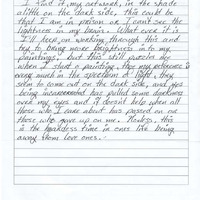 I find it, my artwork, in the shade
a little on the dark side, this could be
that I am in prison or I can't see the
lightness in my brain. What ever it is
I'll keep on working through this and
try to bring more brightness in to my
paintings, but this still puzzles me
when I start a painting, the my reference is
very much in the spectrum of light, they
seem to come out on the dark side, and yes
being incarcerated has pulled some darkness
over my eyes and it doesnt help when all
those who I care about has passed on and
those who gave up on me. Honless, this
is the hardness time in ones life being
away from love ones.